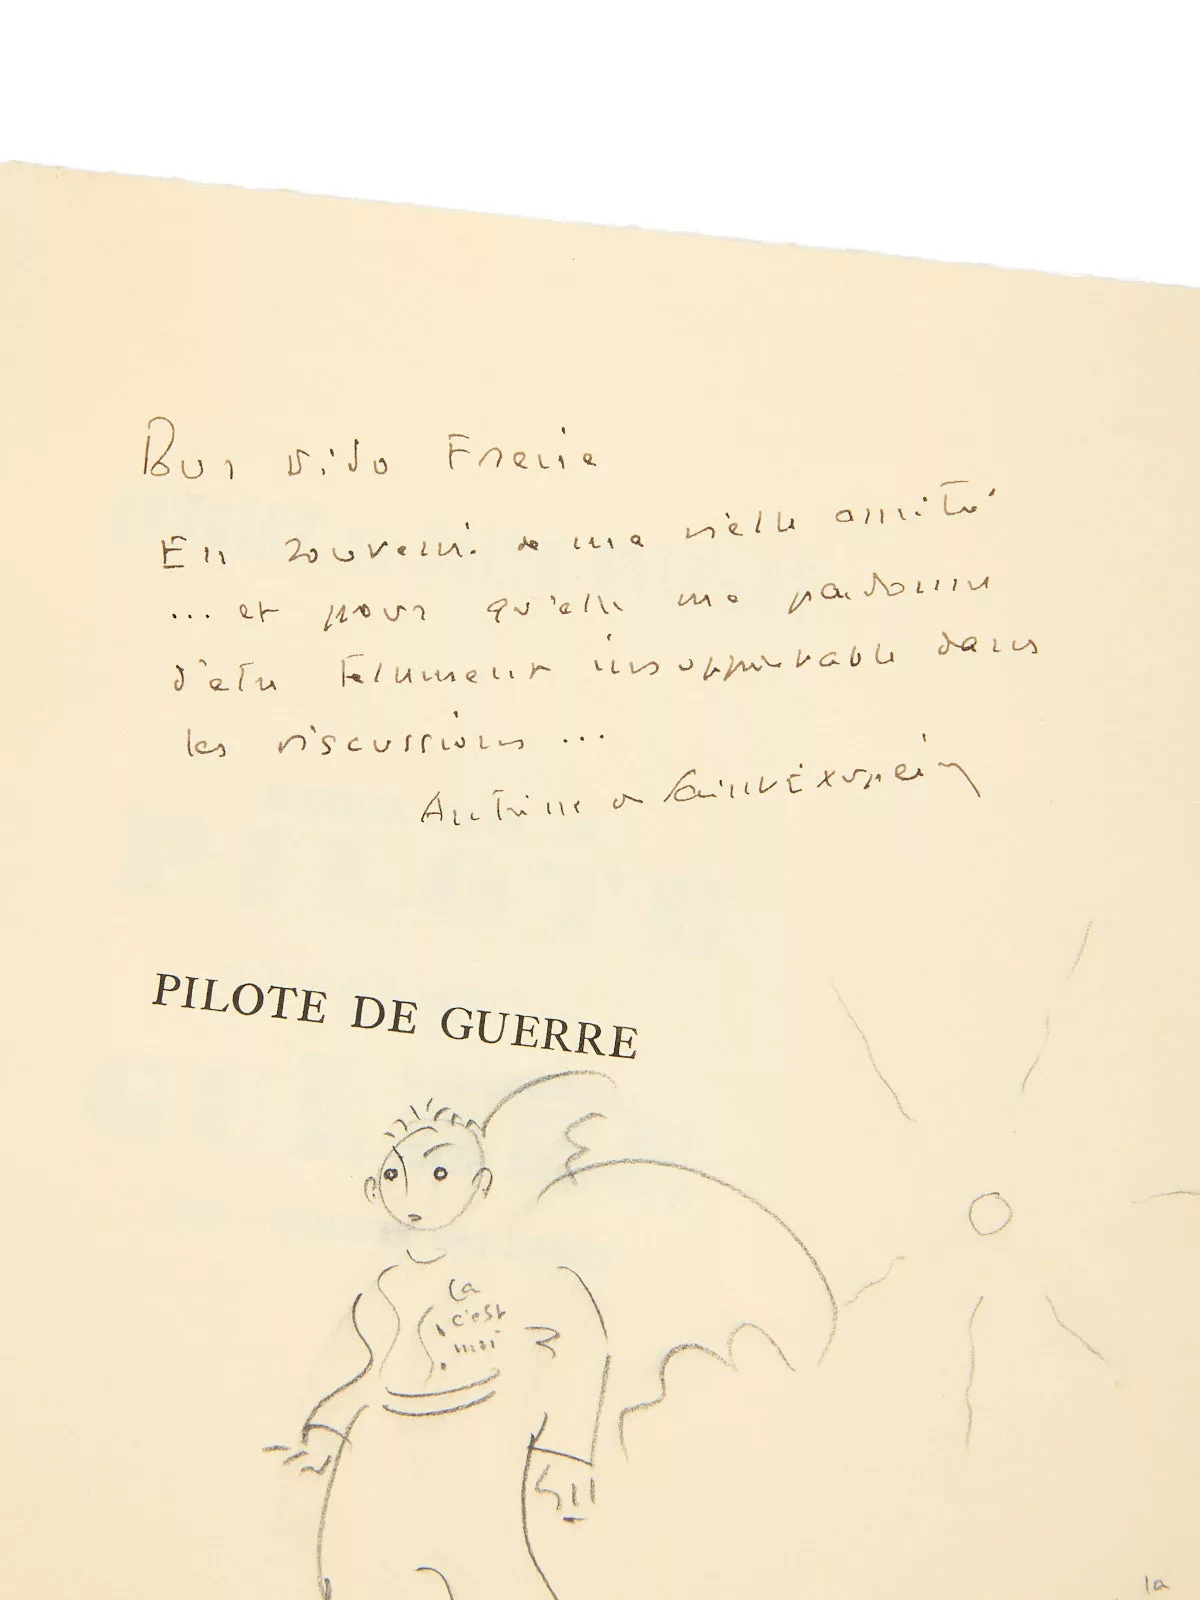 Pour Dido Freire
En souvenir de ma vieille amitié
... et pour qu'elle me pardonne
d'être tellement insupportable dans
les discussions ...
Antoine de Saint Exupéry
PILOTE DE GUERRE
ça
c'est
moi
la